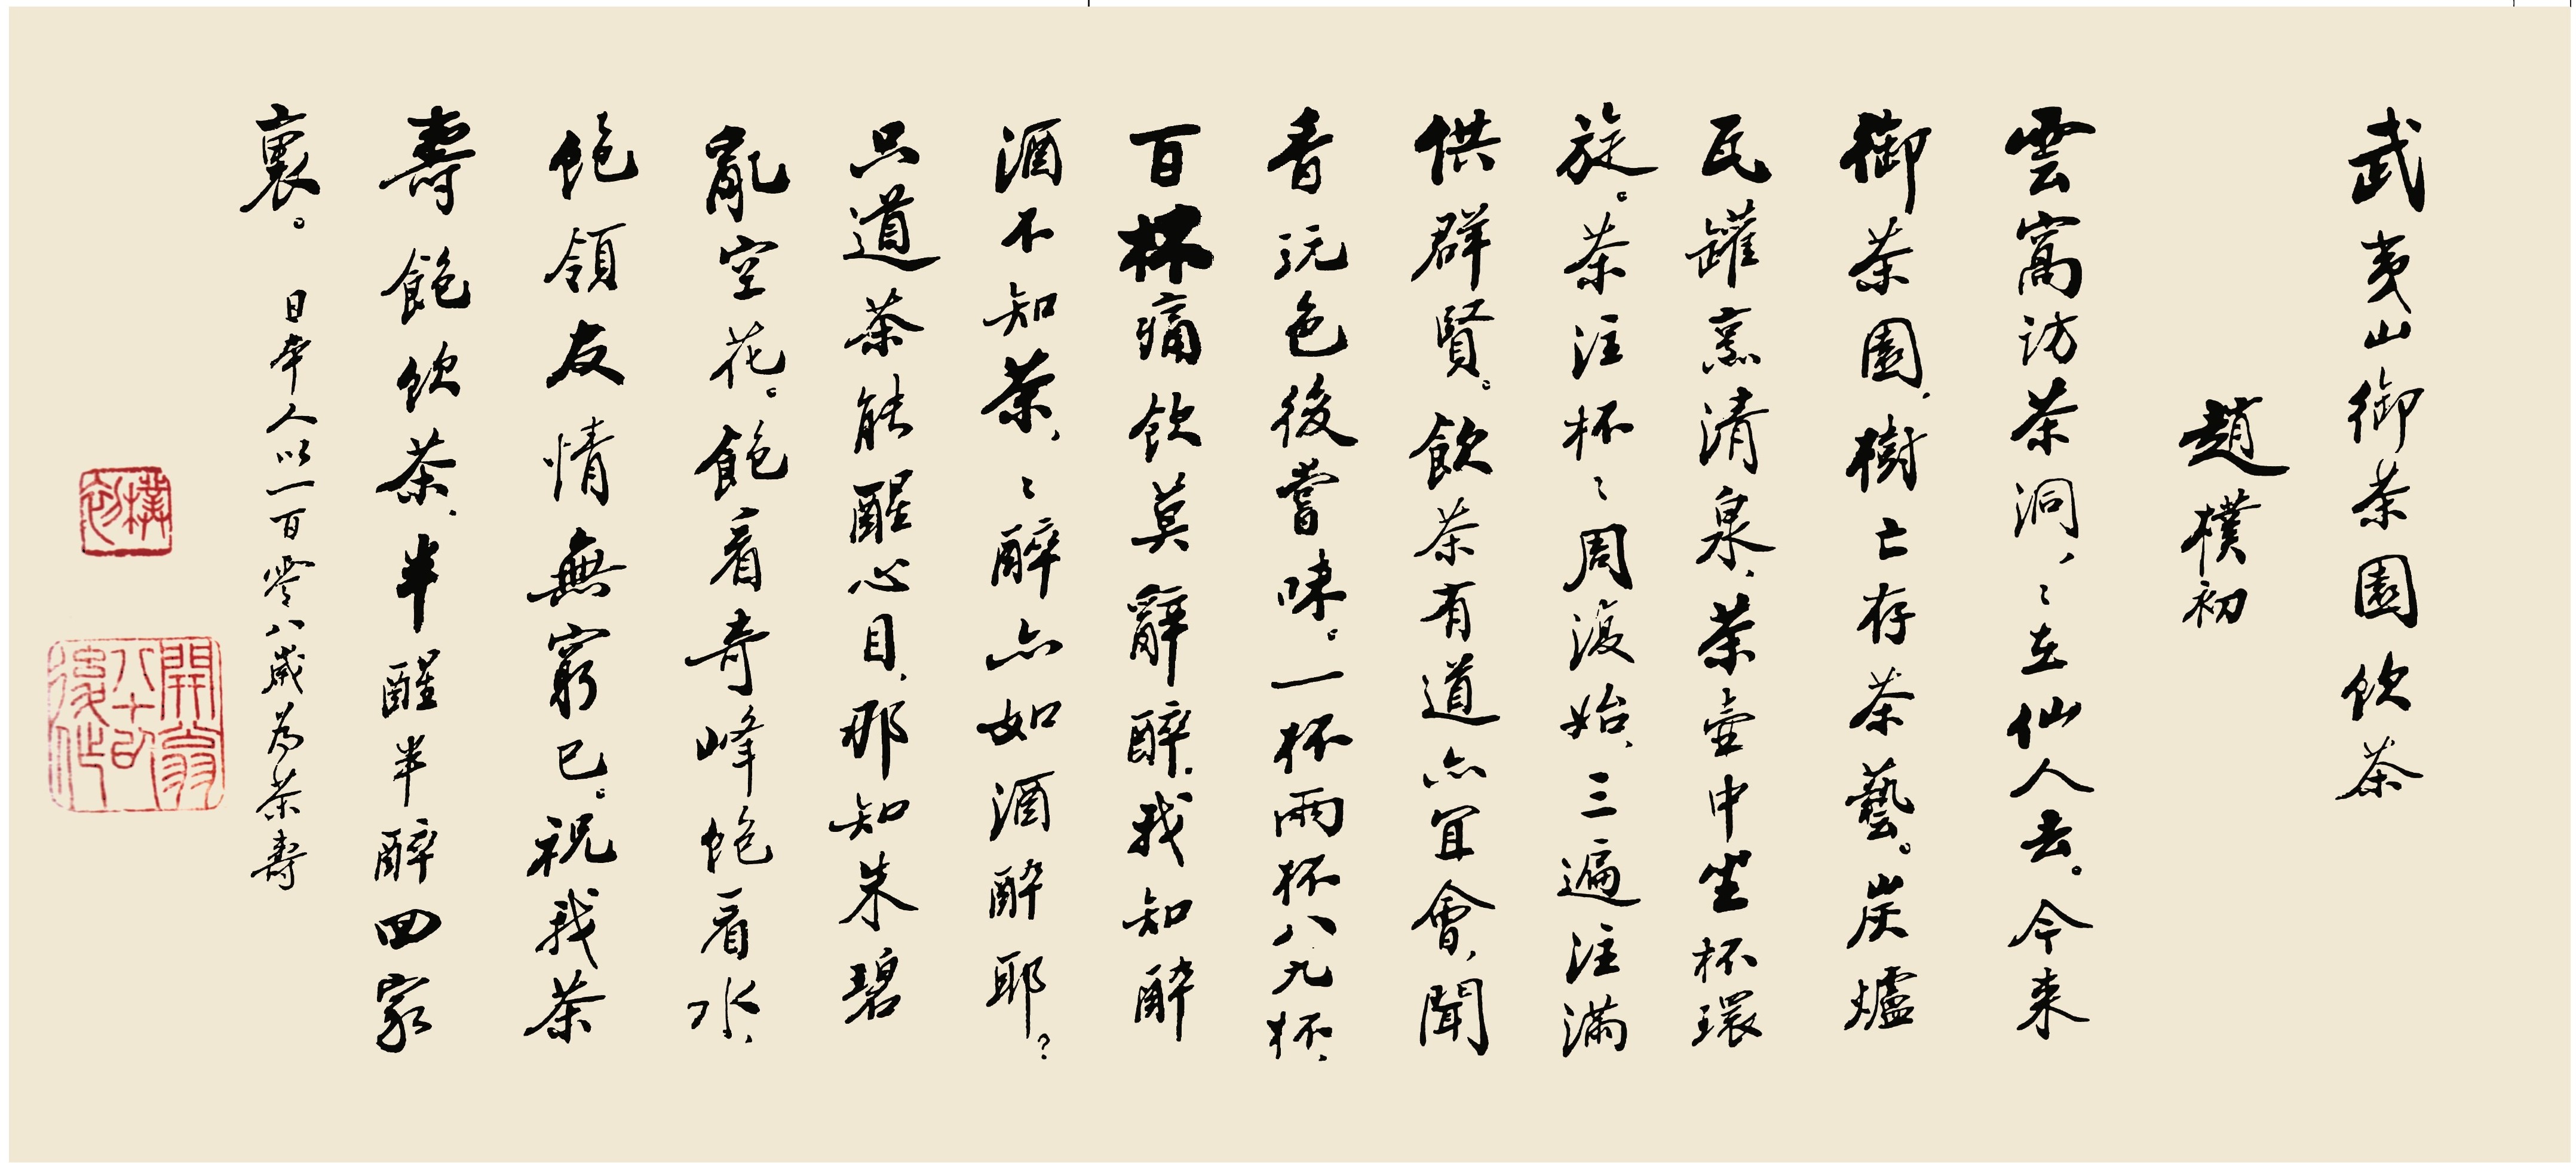 武夷山御茶園飲茶
趙樸初
雲窩訪茶洞，〻在仙人去。今来
御茶園，樹亡存茶藝。炭爐
瓦罐烹清泉，茶壺中坐杯環
旋。茶注杯〻周復始，三遍注滿
供群賢。飲茶有道亦宜會，聞
香玩色後嘗味。一杯兩杯八九杯，
百杯痛飲莫辭醉。我知醉
酒不知茶，〻醉亦如酒醉耶？
只道茶能醒心目，那知朱碧
亂空花。飽看奇峰飽看水，
飽領友情無窮已。祝我茶
壽飽飲茶，半醒半醉回家
裏。 日本人以一百零八歲為茶壽
樸初
開翁八十以後作